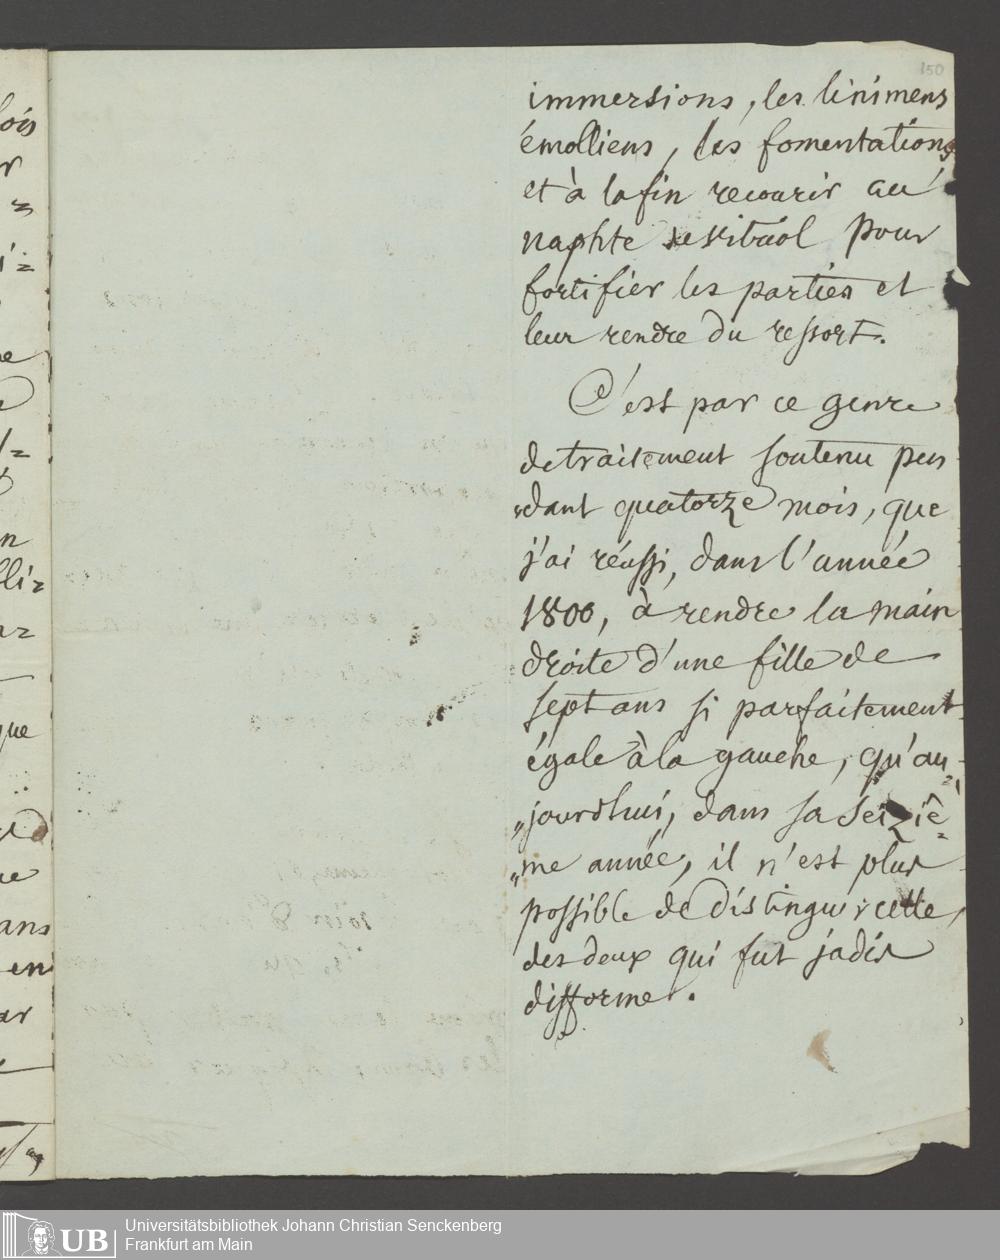 150
immersions, les linimens
émolliens, les fomentations
et à la fin recourir au
naphte de vitriol pour
fortifier les parties et
leur rendre du ressort.
C'est par ce genre
de traitement soutenu pen
„dant quatorze mois, que
j'ai réussi, dans l'année
1800, à rendre la main
droite d'une fille de
sept ans si parfaitement
égale à la gauche, qu'au„
„jourdhui, dans sa seiziê„
„me année, il n'est plus
possible de distinguer cette,
des deux qui fut jadis
difforme.
UB
Universitätsbibliothek Johann Christian Senckenberg
Frankfurt am Main